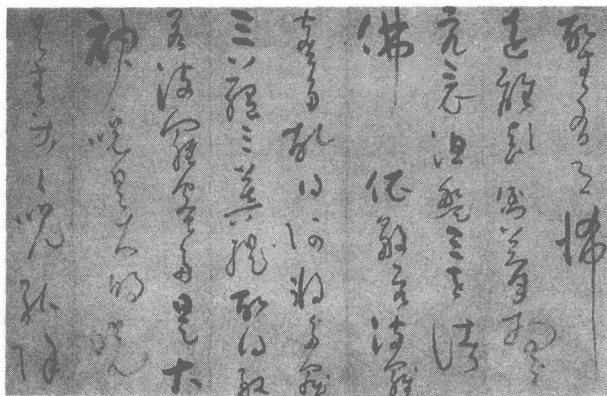 故無有恐怖
遠離顛倒夢想
究竟涅槃三世諸
佛依般若波羅
蜜多故得阿耨多羅
三藐三菩提故知般
若波羅蜜多是大
神咒是大明咒
是無等々咒能除